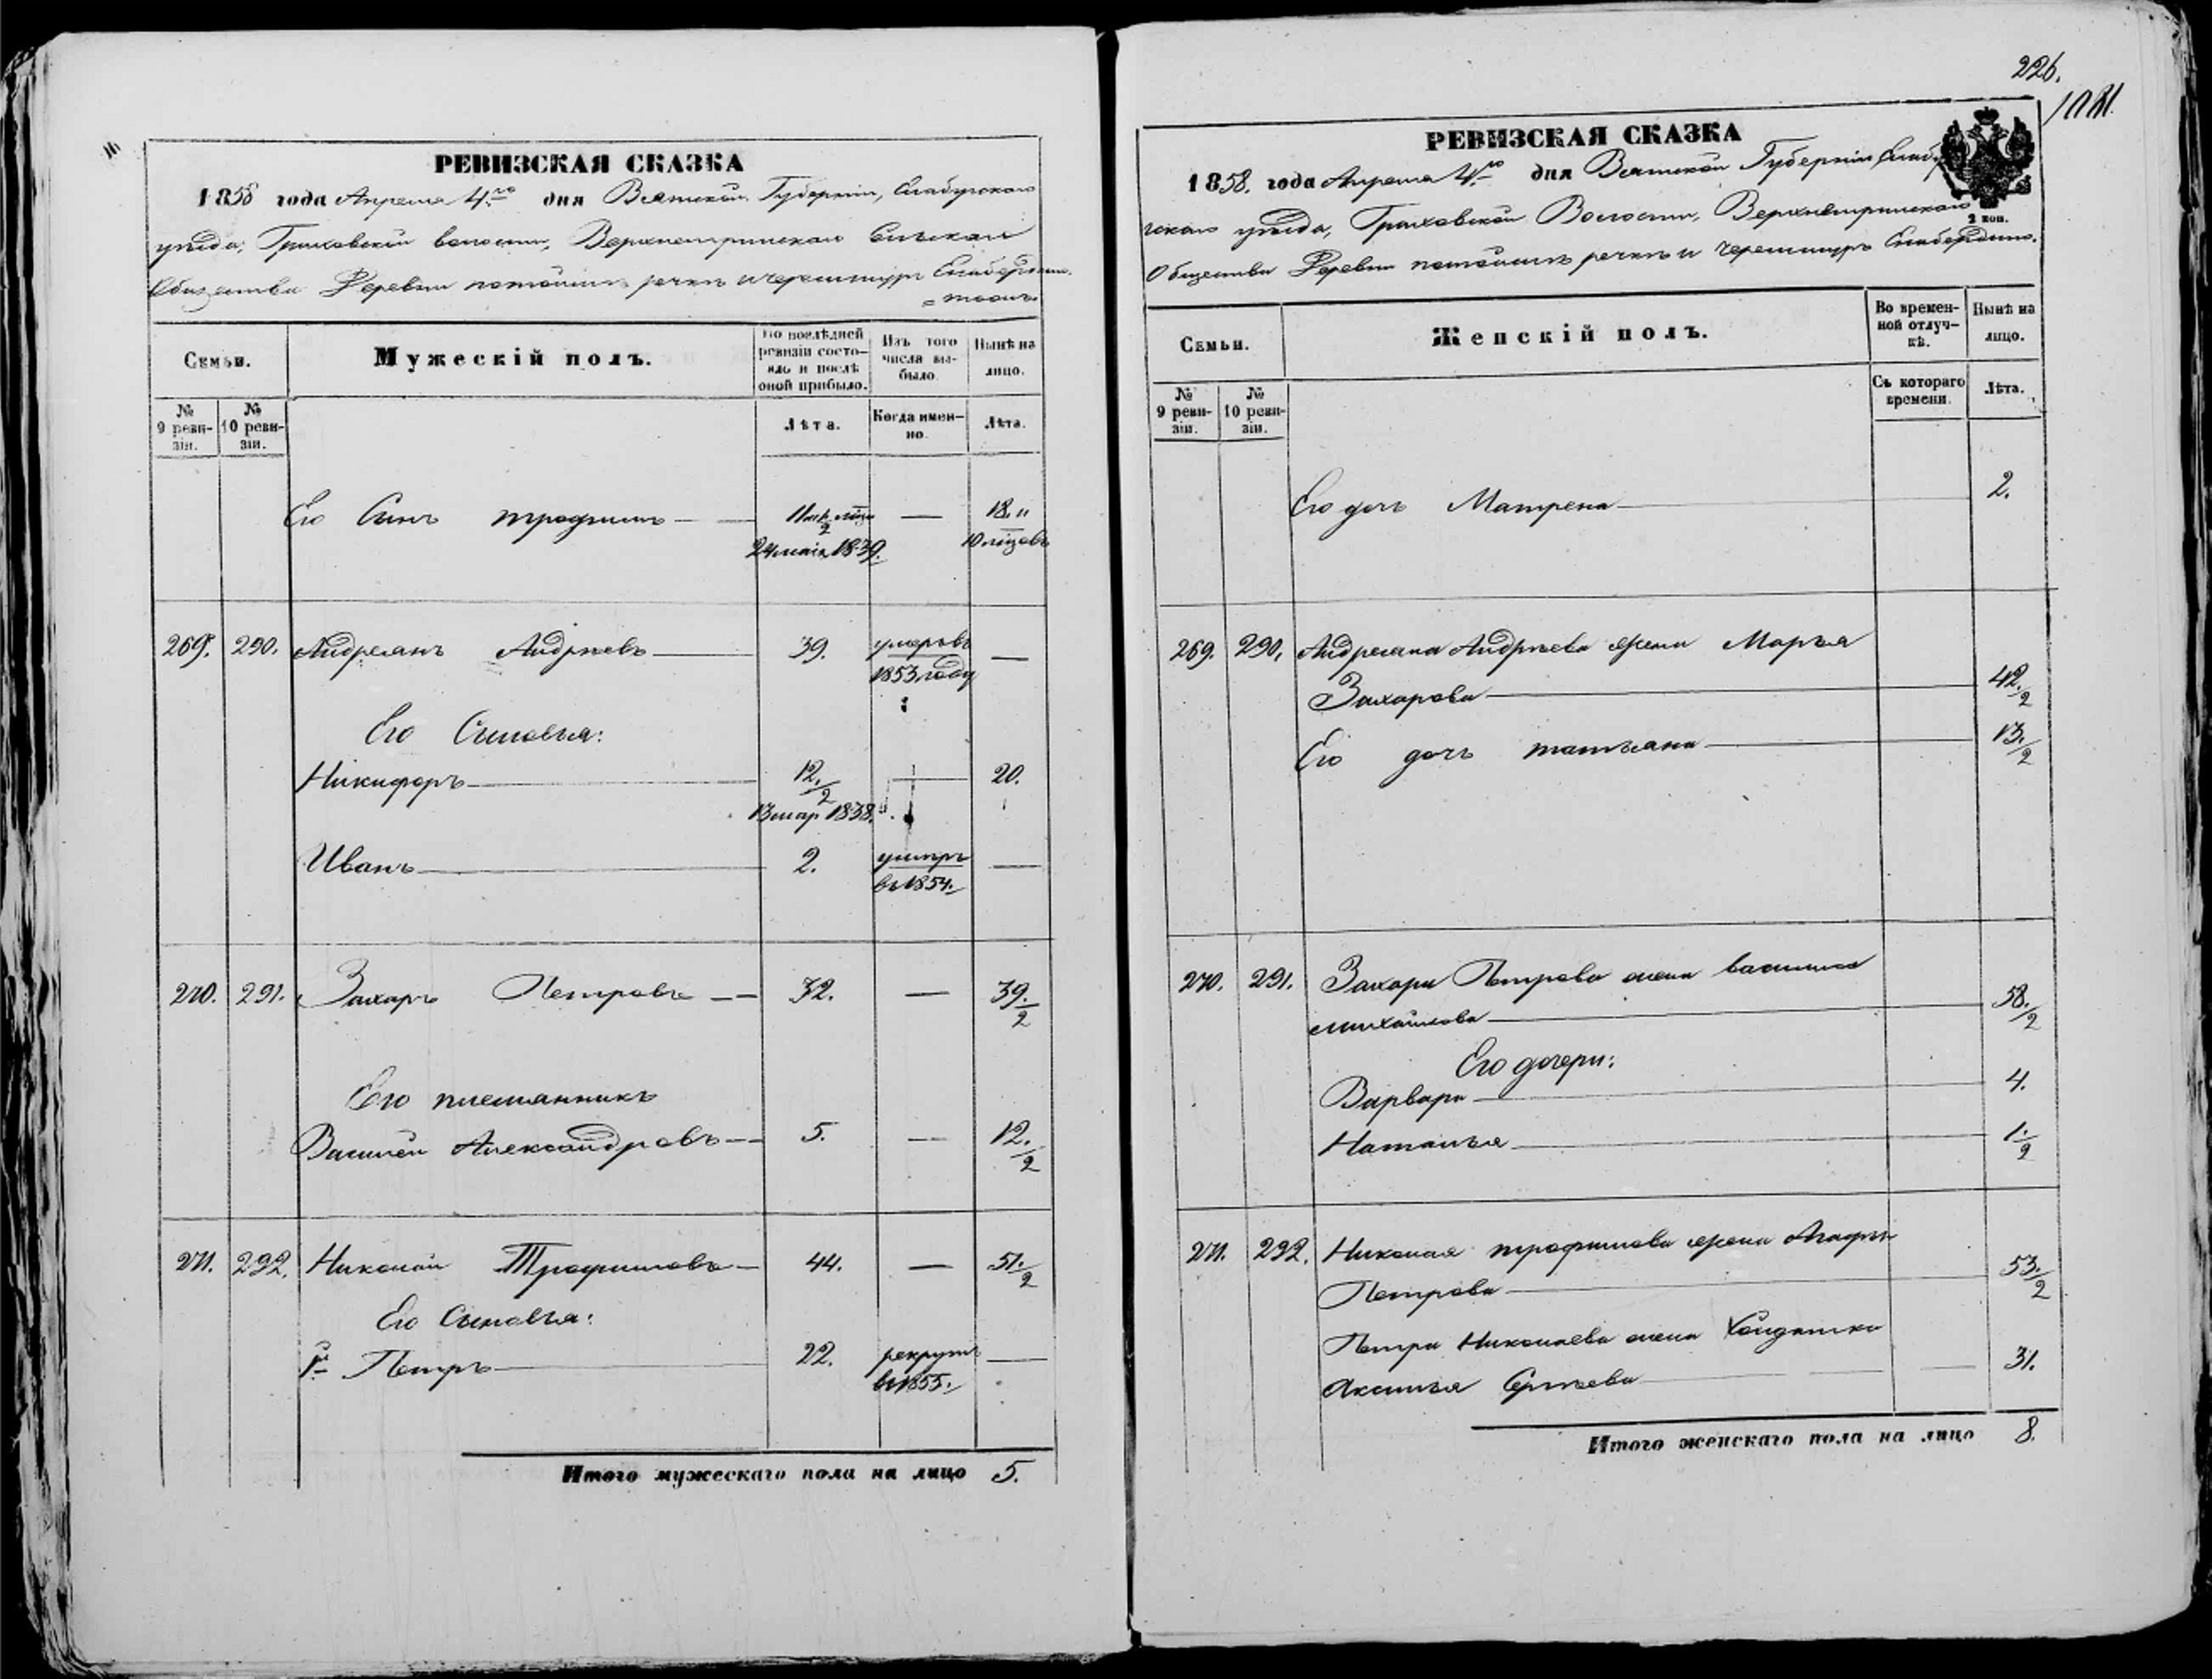 РЕВИЗСКАЯ СКАЗКА
1858 года Апреля 4го дня Вятской Губернiи, Елабужскаго
уѣзда, Граховской волости, Сельскаго
Общества Деревни речкѣ
Семьи.
Мужескiй полъ.
По послѣдней ревизiи состо-
яло и послѣ
оной прибыло.
Изъ того
числа вы-
было.
Нынѣ на
лицо.
№
9 реви-
зiи.
№
10 реви-
зiи.
Лѣта.
Когда имен-
но.
Лѣта.
Его Сынъ трофимъ 11 — 18. "
24 маiя 1839. 10 мцовъ
269. 290. Андреянъ Андрѣевъ 39. умеръ въ —
1853 году
Его Сыновья:
Никифоръ 12./2 — 20.
13 мар 1838.
Иванъ 2. умеръ —
въ 1854.
270. 291. Захаръ Петровъ 32. — 39./2
Его племянникъ
Василей Александровъ 5. — 12./2
271. 292. Николай Трофимовъ 44. — 51./2
Его Сыновья:
1й Петръ 22. рекрутъ —
въ 1855.
Итого мужескаго пола на лицо 5.
226.
РЕВИЗСКАЯ СКАЗКА
1858. года Апреля 4го дня Вятской Губернiи
уѣзда, Граховской Волости,
2 коп.
Общества Деревни речкѣ
Семьи.
Женскiй полъ.
Во времен-
ной отлуч-
кѣ.
Нынѣ на
лицо.
№
9 реви-
зiи.
№
10 реви-
зiи.
Съ котораго
времени.
Лѣта.
Его дочь Матрена 2.
269. 290. Андреяна Андрѣева жена Марья
Захарова 42./2
Его дочь татьяна 13./2
270. 291. Захара Петрова жена
михайлова 58./2
Его дочери:
Варвара 4.
Наталья 1./2
271. 292. Николая трофимова жена
Петрова 53./2
Петра Николаева жена
Аксинья Сергѣева 31.
Итого женскаго пола на лицо 8.